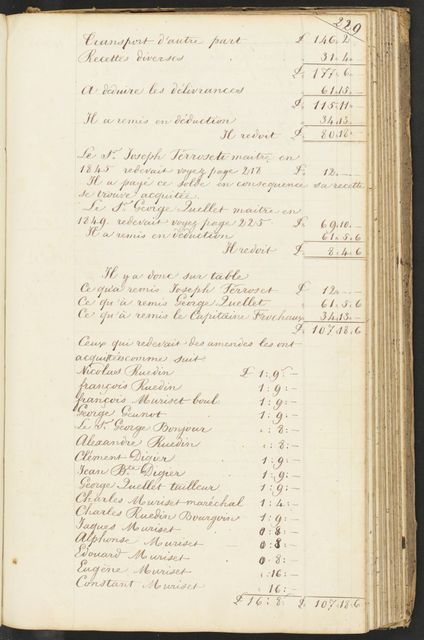 229
Transport d'autre part £ 146.2.
Recettes diverses 31.4.
£ 177.6.
A déduire les délivrances 61.15.
£ 115.11.
Il a remis en déduction 34.13.
Il redoit £ 80.18.
Le Sr. Joseph Terroset maitre en
1845 redevait voyez page 218 £ 12.—
Il a payé ce solde en conséquence sa recette
se trouve acquitée.
Le Sr. George Quellet maitre en
1849 redevait voyez page 225 £. 69.10.—
Il a remis en déduction 61.5.6
Il redoit £. 8.4.6
Il y a donc sur table
Ce qu'a remis Joseph Terroset £ 12.—
Ce qu'à remis George Quellet 61.5.6
Ce qu'à remis le Capitaine Frochaux 34.13.—
£ 107.18.6
Ceux qui redevait des amendes les ont
acquitées comme suit
Nicolas Ruedin £ 1:9:—
françois Ruedin 1:9:—
françois Muriset boul. 1:9:—
George Geunot 1:9:—
Le Sr. George Bonjour ":8:—
Alexandre Ruedin ":8:—
Clément Digier 1:9:—
Jean Bte. Digier 1:9:—
George Quellet tailleur 1:9:—
Charles Muriset maréchal 1:4:—
Charles Ruedin Bourgoin 1:9:—
Jaques Muriset 0:8:—
Alphonse Muriset 0:8:—
Edouard Muriset 0:8:—
Eugène Muriset ":16:—
Constant Muriset ":16:—
£ 16:8: £ 107.18.6